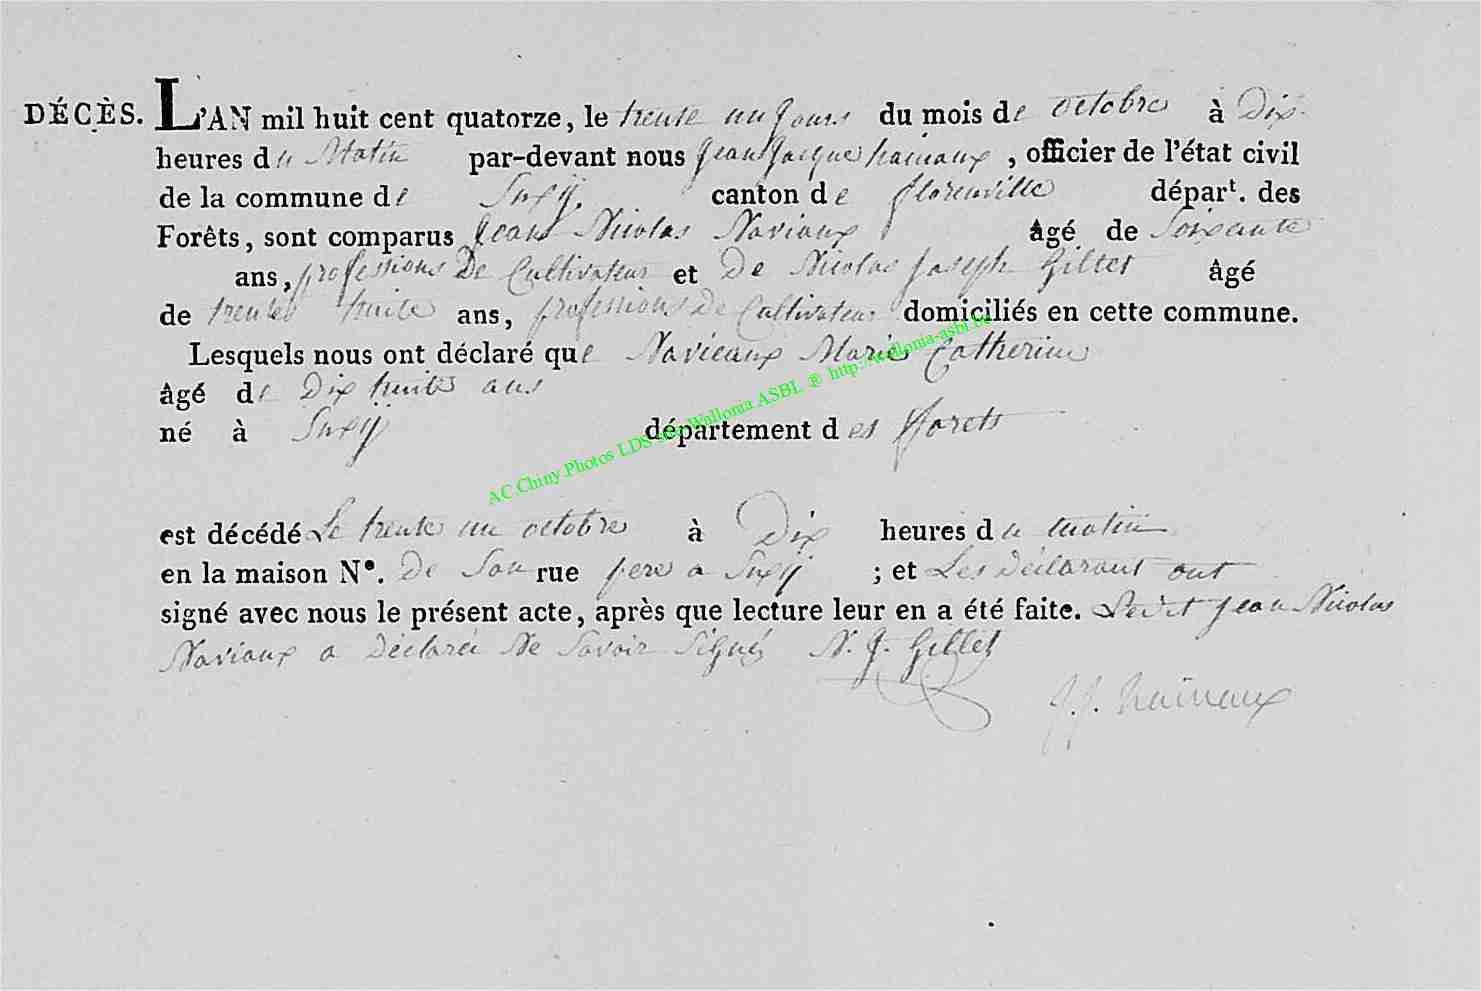 DÉCÈS. L'AN mil huit cent quatorze, le trente un jours du mois de octobre à Dix
heures du Matin par-devant nous Jean Jacque hainaux, officier de l'état civil
de la commune de Suxÿ, canton de florenville départ. des
Forêts, sont comparus Jean Nicolas Naviaux âgé de Soixante
ans, professions De Cultivateur et De Nicolas Joseph Gillet âgé
de trentes huite ans, professions De Cultivateur domiciliés en cette commune.
Lesquels nous ont déclaré que Navieaux Marie Catherine
âgé de Dix huite ans
né à Suxÿ département des fforets
AC Chiny Photos LDS Wallonia ASBL ® http://wallonia-asbl.be
est décédé Le trente un octobre à Dix heures du matin
en la maison N°. De Son rue pere a Suxÿ ; et Les déclarant ont
signé avec nous le présent acte, après que lecture leur en a été faite. Ledit Jean Nicolas
Naviaux a Déclaré Ne Savoir Signé N. J. Gillet
J. J. hainaux